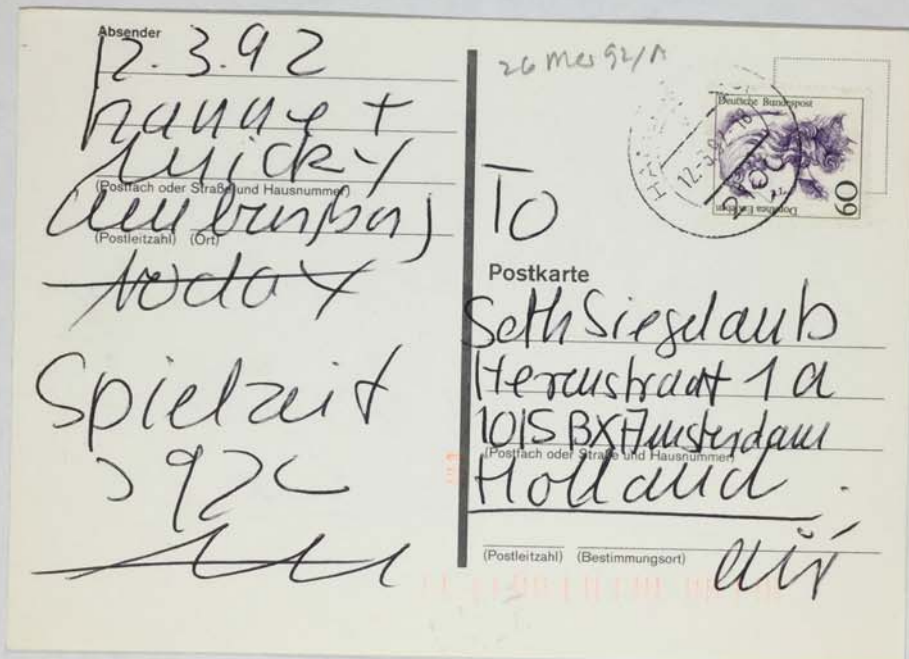 Absender
12.3.92
Hanne +
(Postfach oder Straße und Hausnummer)
(Postleitzahl) (Ort)
today
Spielzeit
>92<
26 Mrs 92/A
Deutsche Bundespost
Dorothea Erxleben
60
To
Postkarte
Seth Siegelaub
Herenstraat 1a
1015 BX Amsterdam
(Postfach oder Straße und Hausnummer)
Holland
(Postleitzahl) (Bestimmungsort)
air